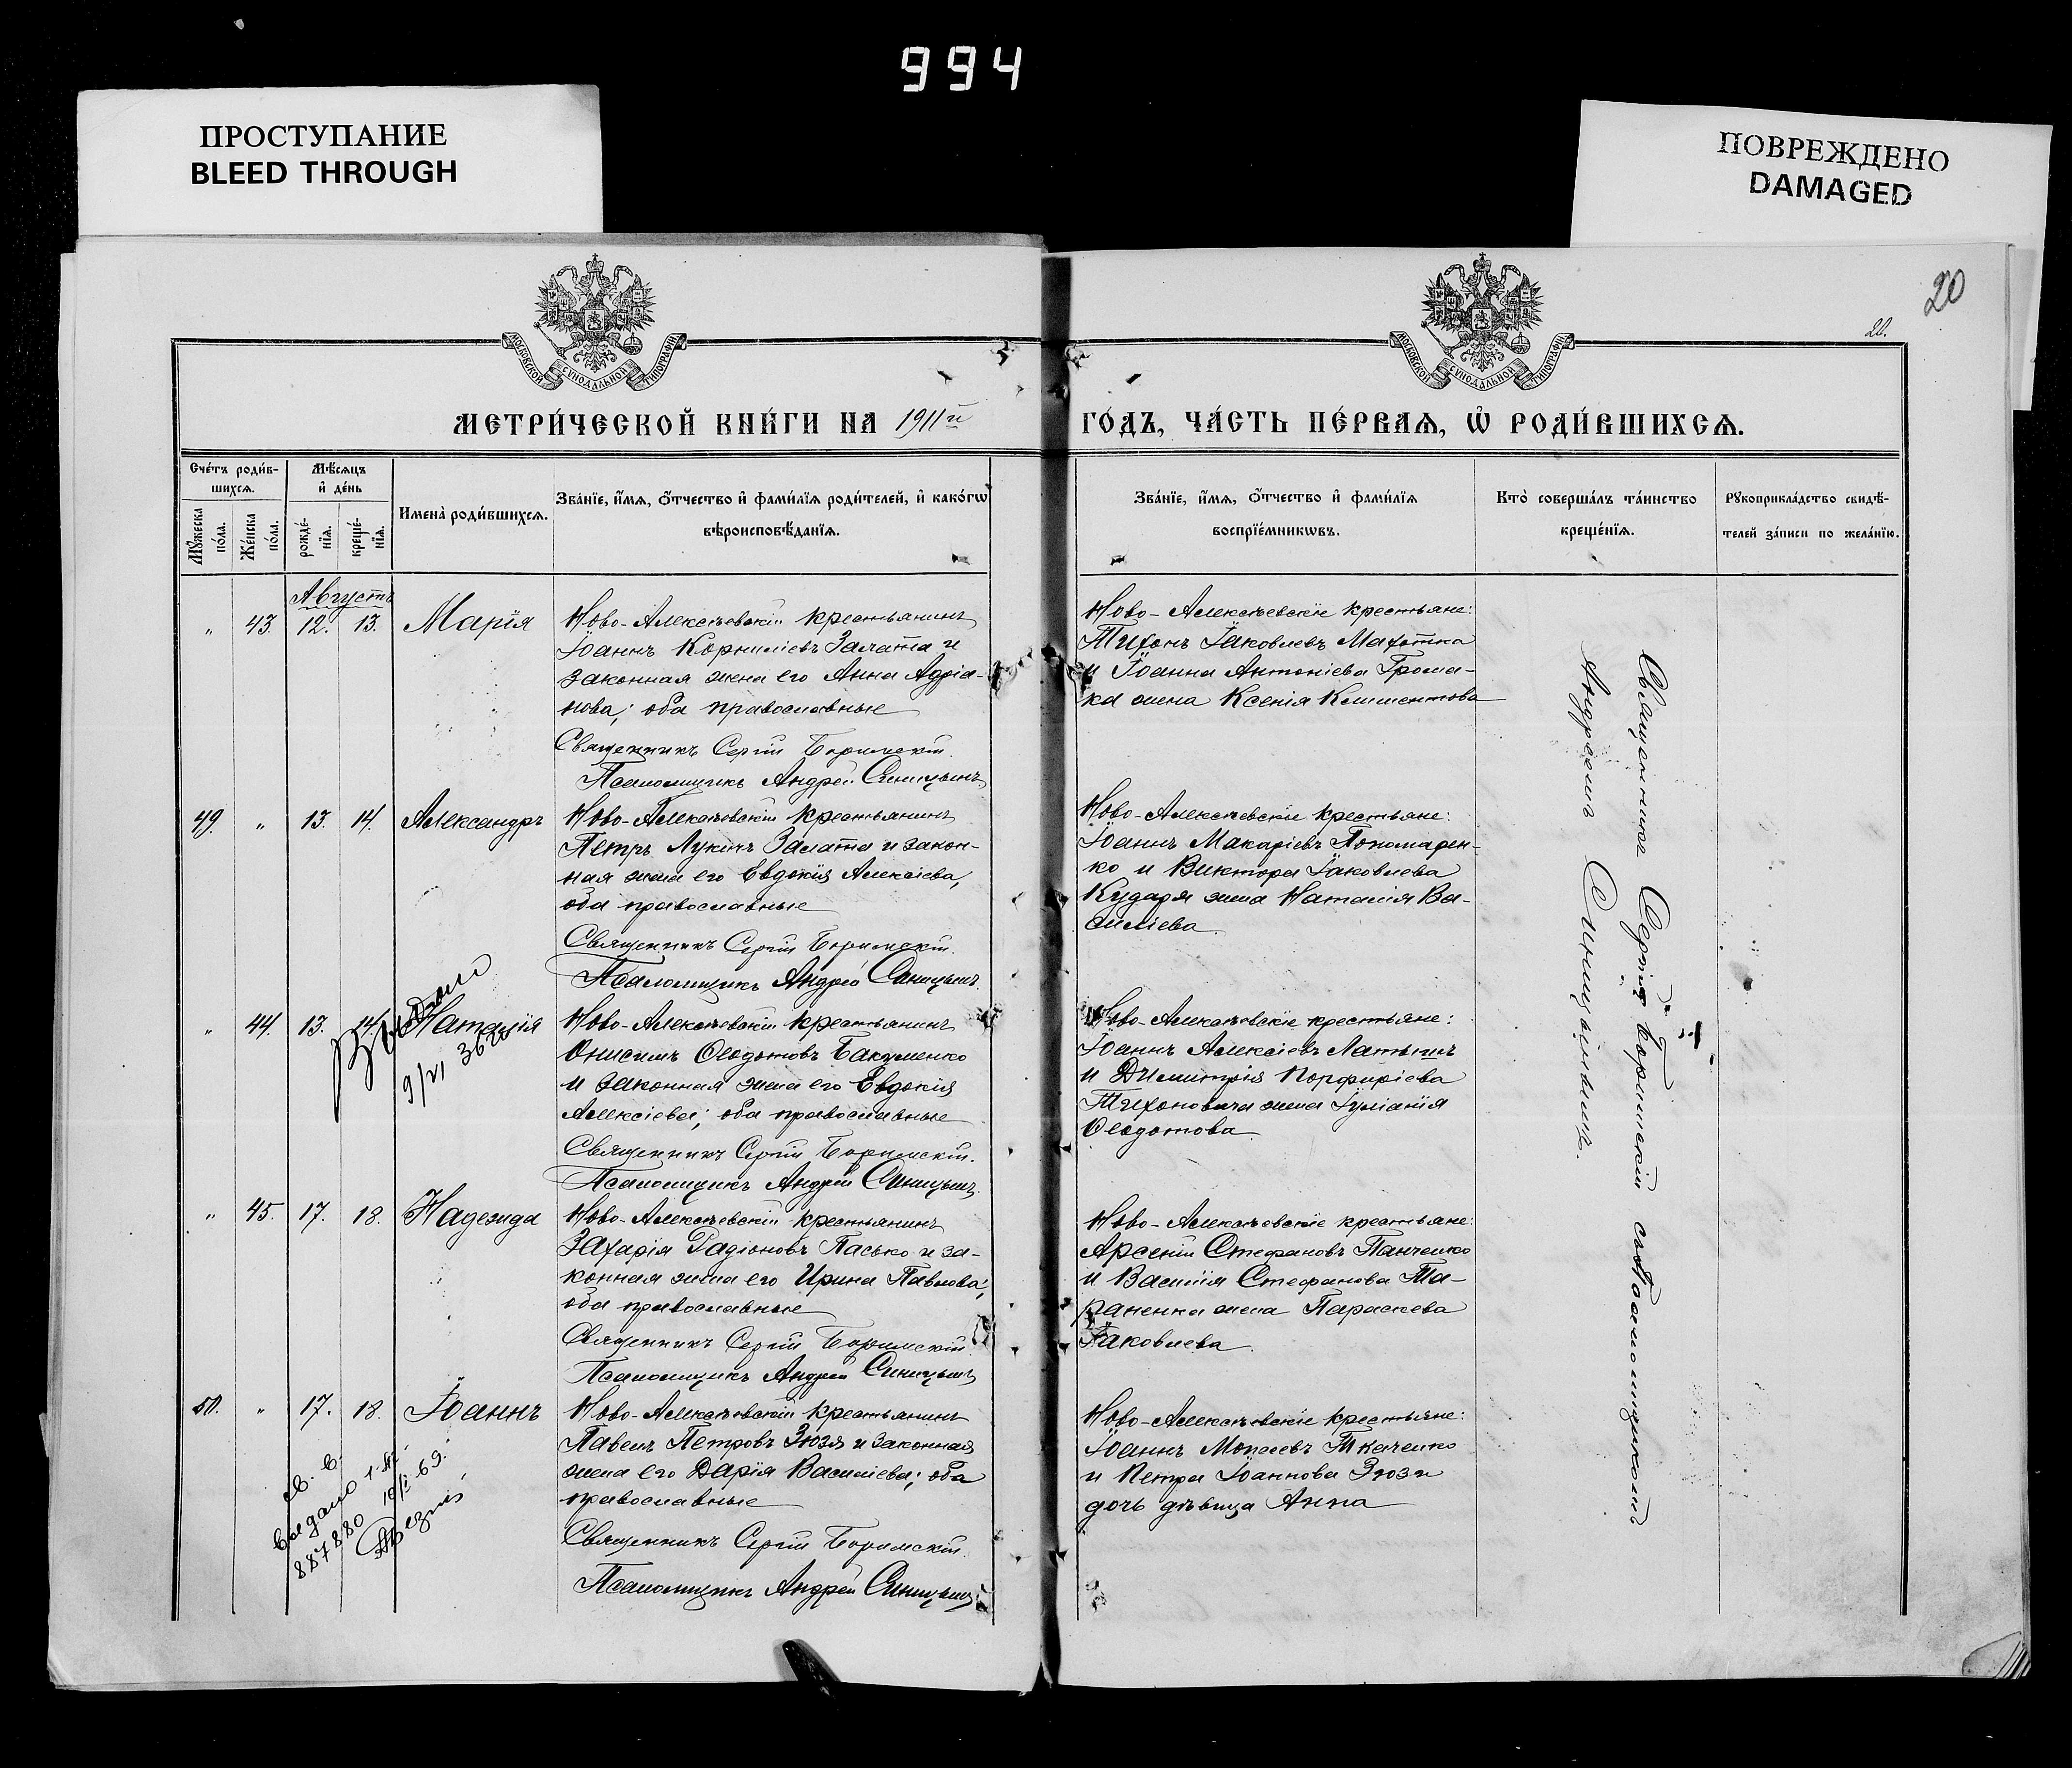 994
ПРОСТУПАНИЕ
BLEED THROUGH
ПОВРЕЖДЕНО
DAMAGED
20
20.
МОСКОВСКОЙ СѴНОДАЛЬНОЙ ТИПОГРАФІИ
МОСКОВСКОЙ СѴНОДАЛЬНОЙ ТИПОГРАФІИ
МЕТРИ́ЧЕСКОЙ КНИ́ГИ НА 1911й
ГО́ДЪ, ЧА́СТЬ ПЕ́РВАѦ, Ѽ РОДИ́ВШИХСѦ.
Сче́тъ роди́в-
шихсѧ.
Мꙋ́жеска по́ла.
Же́нска по́ла.
Мѣ́сѧцъ
и҆ де́нь
рожде́-
нїѧ.
креще́-
нїѧ.
Имена̀ роди́вшихсѧ.
Зва́нїе, и҆́мѧ, ѻ҆́тчество и҆ фами́лїѧ роди́телей, и҆ како́гѡ
вѣроисповѣ́данїѧ.
Зва́нїе, и҆́мѧ, ѻ҆́тчество и҆ фами́лїѧ
воспрїе́мникѡвъ.
Кто̀ соверша́лъ та́инство
креще́нїѧ.
Рꙋкоприкла́дство свидѣ́-
телей за́писи по жела́нїю.
Августъ
„ 43. 12. 13. Марія
Ново-Алексѣевскій крестьянинъ
Іоаннъ Корниліевъ Залата и
законная жена его Анна Адріа-
нова; оба православные
Священникъ Сергій Боримскій.
Псаломщикъ Андрей Синицынъ
Ново-Алексѣевскіе крестьяне:
Тихонъ Іаковлевъ Махотка
и Іоанна Антоніева Грома-
ка жена Ксенія Климентова
49. „ 13. 14. Александръ
Ново-Алексѣевскій крестьянинъ
Петръ Лукинъ Залата и закон-
ная жена его Евдокія Алексіева,
оба православные
Священникъ Сергій Боримскій.
Псаломщикъ Андрей Синицынъ.
Ново-Алексѣевскіе крестьяне:
Іоаннъ Макаріевъ Пономарен-
ко и Виктора Іаковлева
Кударя жена Наталія Ва-
силіева.
„ 44. 13. 14. Наталія
9/VI
Ново-Алексѣевскій крестьянинъ
Онисимъ Ѳеодотовъ Бакуменко
и законная жена его Евдокія
Алексіева; оба православные
Священникъ Сергій Боримскій.
Псаломщикъ Андрей Синицынъ.
Ново-Алексѣевскіе крестьяне:
Іоаннъ Алексіевъ Латышъ
и Димитрія Порфиріева
Тихоновича жена Іуліанія
Ѳеодотова.
„ 45. 17. 18. Надежда
Ново-Алексѣевскій крестьянинъ
Захарія Радіоновъ Пасько и за-
конная жена его Ирина Павлова;
оба православные
Священникъ Сергій Боримскій
Псаломщикъ Андрей Синицынъ
Ново-Алексѣевскіе крестьяне:
Арсеній Стефановъ Панченко
и Василія Стефанова Та-
раненка жена Параскева
Іаковлева.
50. „ 17. 18. Іоаннъ
887880
Ново-Алексѣевскій крестьянинъ
Павелъ Петровъ Зюзя и законная
жена его Дарія Василіева; оба
православные
Священникъ Сергій Боримскій.
Псаломщикъ Андрей Синицынъ
Ново-Алексѣевскіе крестьяне:
Іоаннъ Моѵсеевъ Ткаченко
и Петра Іоаннова Зюзи
дочь дѣвица Анна
Священникъ Сергій Боримскій съ псаломщикомъ
Андреемъ Синицынымъ.